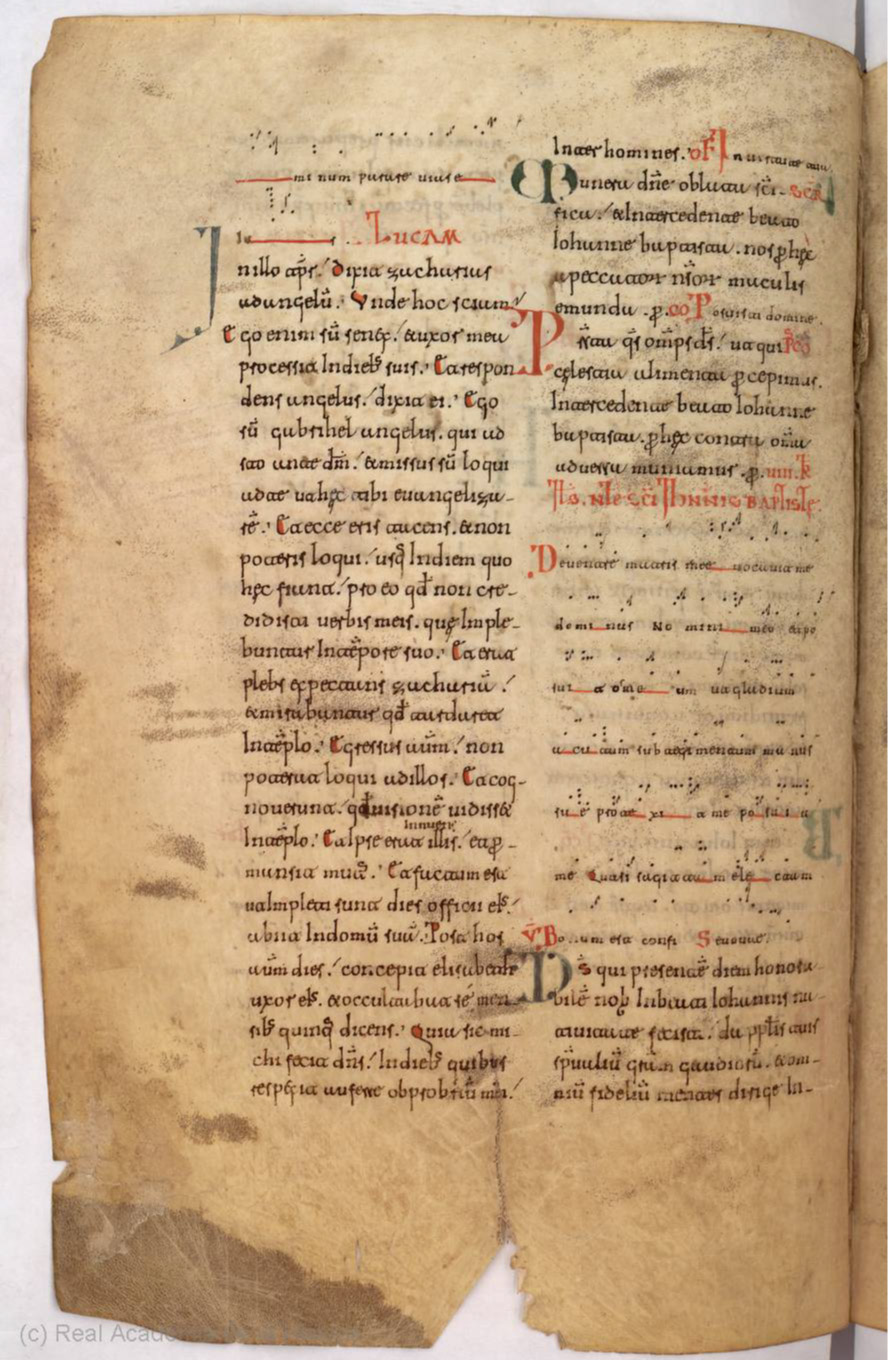 mi num parare uiue
le s. Lucam
In illo tp̄s. dixit zacharias
ad angelū. Unde hoc sciam
Ego enim sū senex. et uxor mea
processit In dieb; suis. Et respon
dens angelus. dixit ei. Ego
sū gabrihel angelus. qui ad
sto ante dm̄. et missus sū loqui
ad te et hęc tibi euangeliza-
re. Et ecce eris tacens. et non
poteris loqui. usq; In diem quo
hęc fiant. pro eo qd̄ non cre-
didisti uerbis meis. quę Imple-
buntur In tēpore suo. Et erat
plebs expectans zachariā.
et mirabantur qd̄ tardaret
In tēplo. Egressus aūtm. non
poterat loqui ad illos. Et cog-
nouerunt. qd̄ uisionē uidisset
innuens
In tēplo. Et Ipse erat illis. et p̱
mansit mut;. Et factum est
ut Impleti sunt dies officii ei;.
abiit In domū suā. Post hos
aūm dies. concepit elisabeth
uxor ei;. et occultabat se men
sib; quinq; dicens. Quia sic mi-
chi fecit dn̄s. In dieb; quibus
respexit auferre obprobriū m̄m.
Inter homines. oF In uirtute tua
Munera dn̄e oblata sc̄i- Scrā
fica. et Intercedente beato
Iohanne baptista. nos p̱ hęc
a peccator̄ nr̄or̄ maculis
emunda . p̱. co Posuisti domine.
Pręsta q̄s om̄ps ds̄. ut qui
cęlestia alimenta p̱cepimus.
Intercedente beato Iohanne
baptista. p̱ hęc contra om̄ia
aduersa muniamur .p̱. uiii. k
Iłs. nt̄e sc̄i Iohannis baptiste
De uentre matris mee uocauit me
dominus Nomine meo et po
sui t os me um ut gladium
a cu tum sub tegimentum ma nus
su e prote xi t me posuit
me Quasi sagittam ele ctam
V̄ Bonum est confi Seuouae
Ds̄ qui presentē diem honora-
bilē nob̄ In beati Iohannis na-
tiuitate fecisti. da pplīs tuis
sp̄ualiū gr̄am gaudiorū. et om-
niū fideliū mentes dirige In-
(c) Real Acade